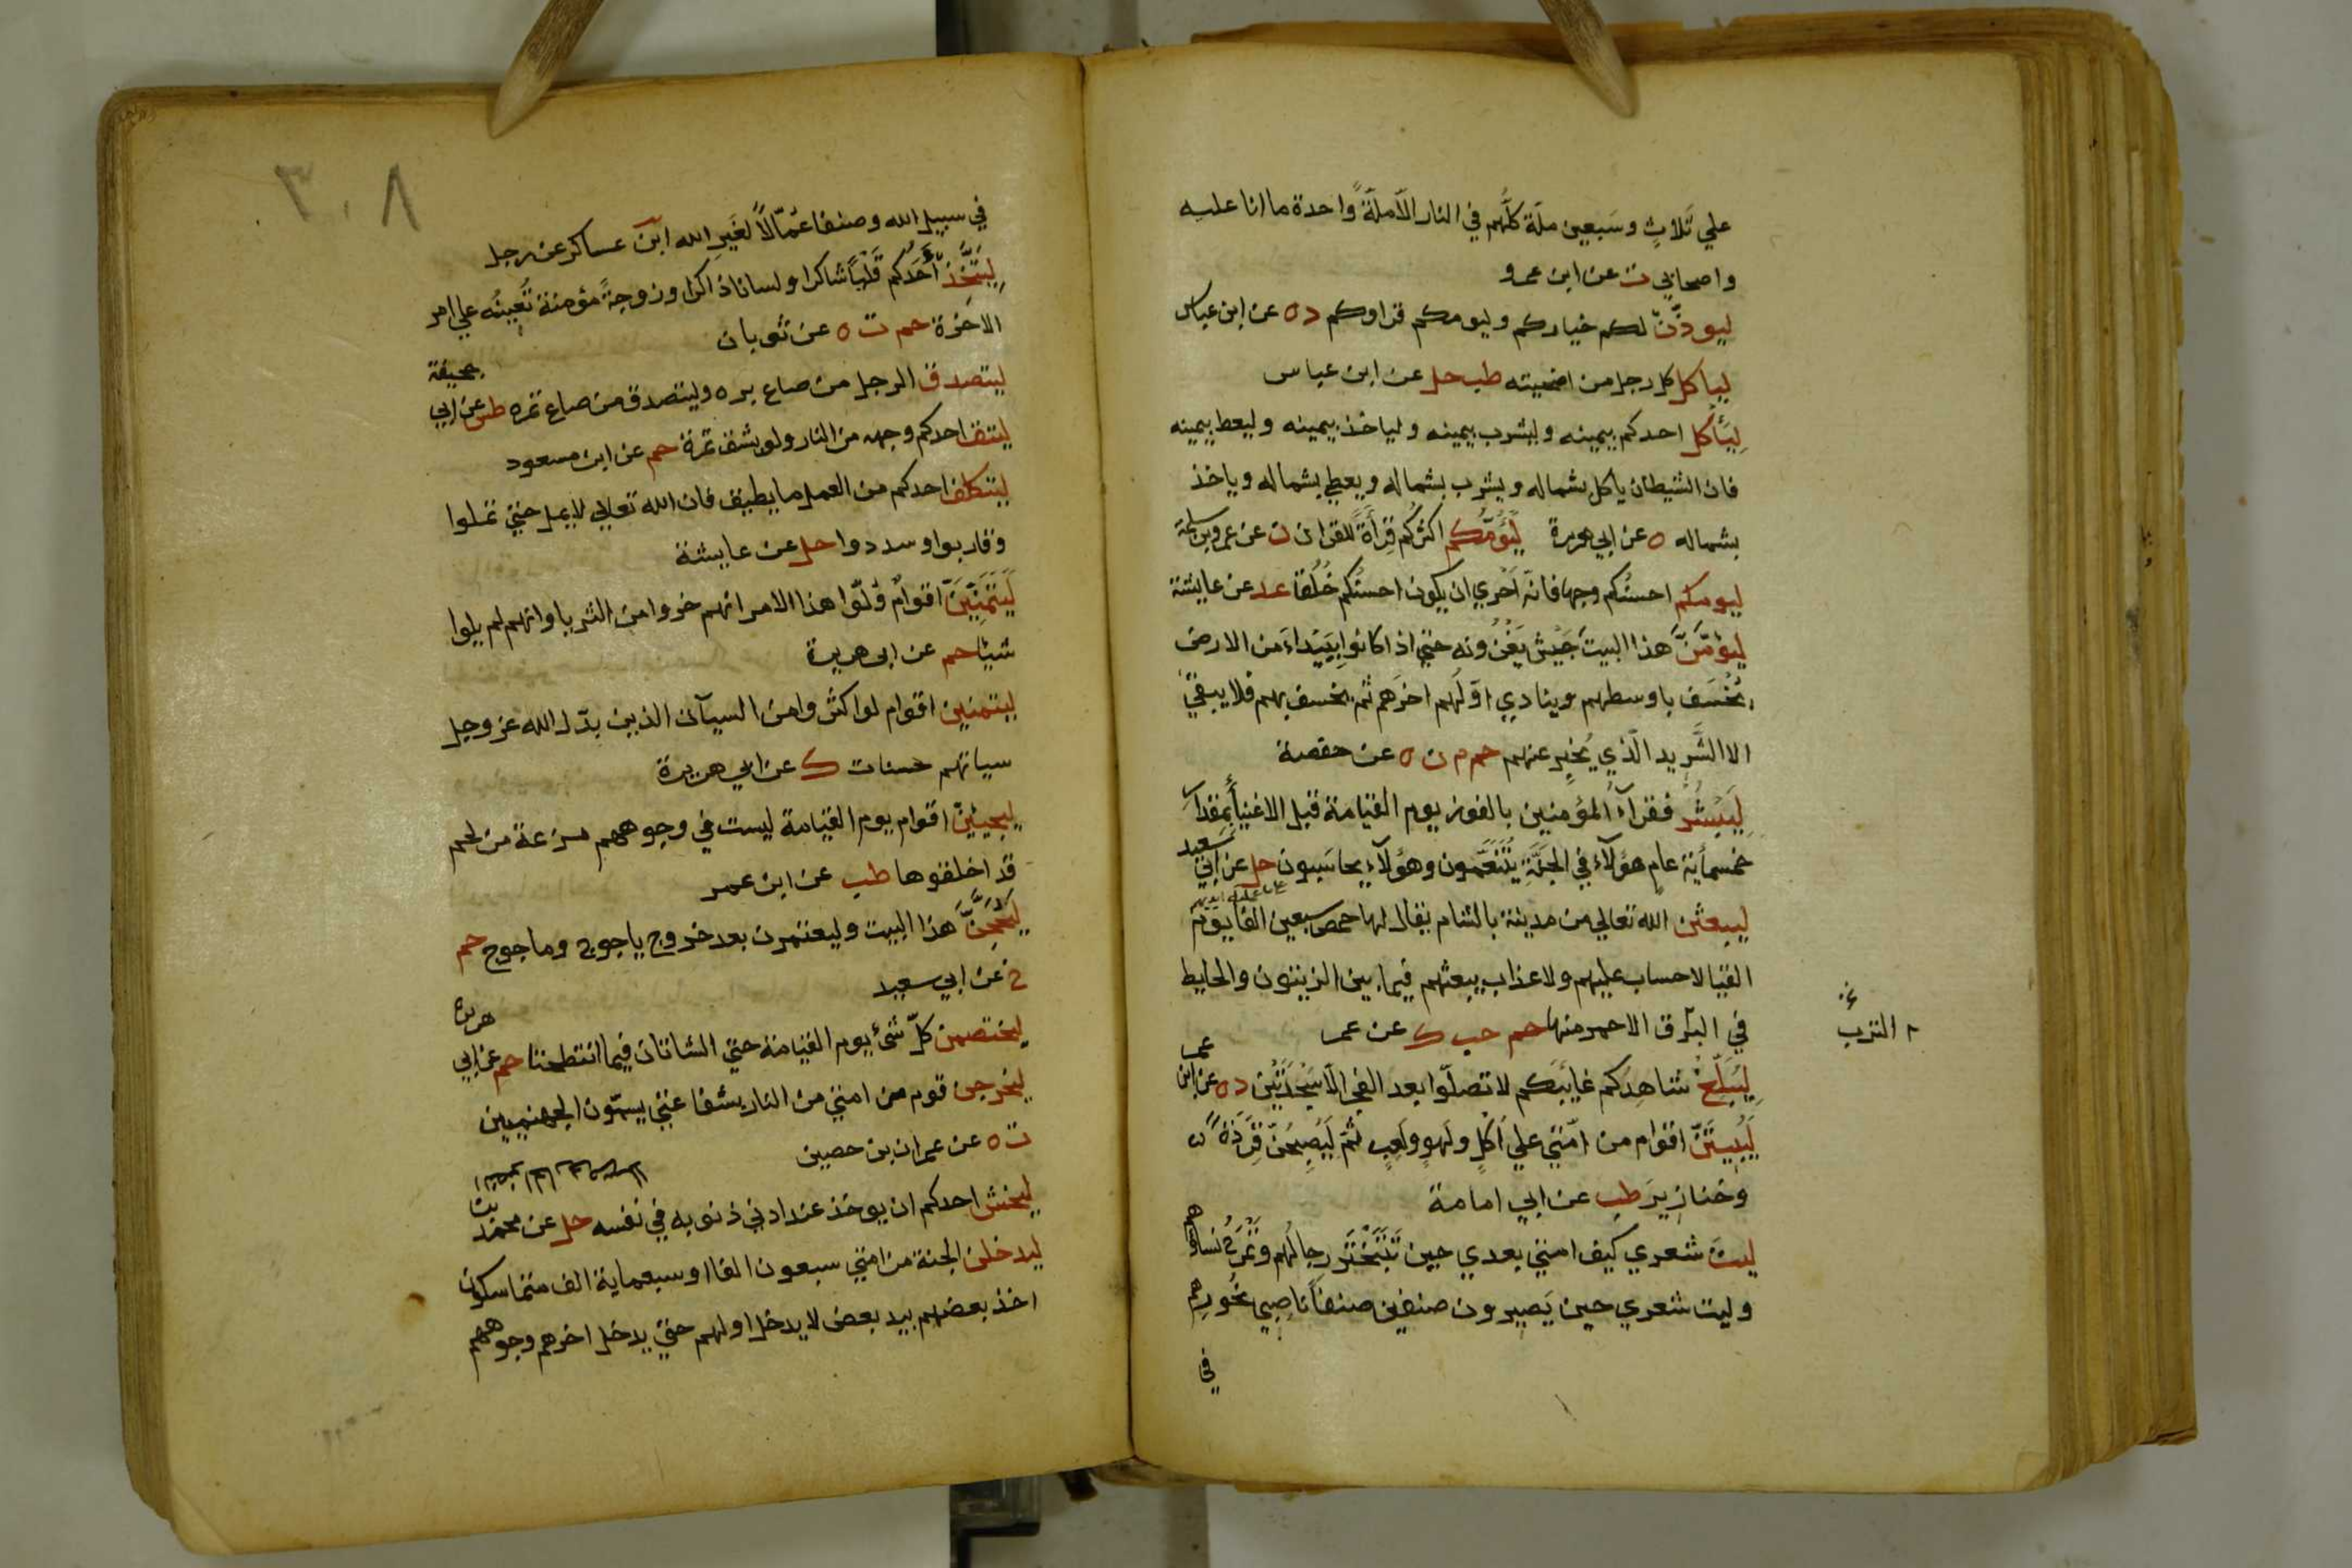 علي ثَلاثٍ وسَبعين ملّة كلُّهم في النار الّا ملّةً واحدة ما انا عليه
واصحابي ت عن ابن عمرو
ليوذّنّ لكم خياركم وليومكم قراوكم د ه عن ابن عباس
لياكل كل رجل من اضحيته طب حل عن ابن عباس
لِيَأكل احدكم بيمينه وليشرب بيمينه ولياخذ بيمينه وليعط بيمينه
فان الشيطان ياكل بشماله ويشرب بشماله ويعطي بشماله وياخذ
بشماله ه عن ابي هريرة لِيَؤُمَّكم اكثركُم قِرأةً للقران ن عن عمرو بن سلمة
ليومكم احسنُكم وجها فانّه اَحْري ان يكون احسنُكم خُلُقا عد عن عايشة
ليؤمَّنَّ هذا البيتَ جَيش يَغْزُونه حتي اذا كانوا ببَيْداءَ من الارض
يُخْسَف باوسطهم وينادي اوّلُهم اخرَهم ثم يخسف بهم فلا يبقيّ
الا الشَّرِيد الّذي يُخبِر عنهم حم م ن ه عن حفصة
لِيَبْشُرْ فقرآءُ المؤمنين بالفوز يوم القيامة قبل الاغنيأ بمقدار
خمسمأية عام هؤلآء في الجَنَّةِ يَتَنَعَّمون وهؤلآءِ يحاسَبون حل عن ابي سعيد
ليبعثن الله تعالي من مدينة بالشام يقال لها حمص سبعين الفا يوم
القيا لا حساب عليهم ولا عذاب يبعثهم فيما بين الزيتون والحايط
في البَرق الاحمر منها حم حب ك عن عمر
التزب
لِيُبَلِّغْ شاهِدُكم غايبَكم لا تصلّوا بعد الفجر الّا سَجْدَتَيْن د ه عن ابن عمر
لَيَبِيتَنَّ اقوام من امّتي علي اَكْلٍ ولَهوٍ ولَعِبٍ ثمّ لَيُصْبِحُنّ قِرَدَةً
وخنازِيرَ طب عن ابي امامة
ليتَ شعري كيف امتي بعدي حين تَتَبَخْتَر رجالُهم وتَمْرَحُ نساؤهم
وليت شعري حين يَصِيرون صنفين صنفاً ناصِبي نُحُورِهم
في
٣٠٨
في سبيل الله وصنفا عُمّالاً لغَيرِ الله ابن عساكر عن رجل
لِيَتَّخِذْ أَحَدُكم قَلْباً شاكرا ولسانا ذاكرا وزوجةً مؤمنة تُعينُه علي امر
الاخرة حم ت ه عن ثوبان
ليتصدق الرجل من صاع بره وليتصدق من صاع تمره طس عن ابي جحيفة
ليتق احدكم وجهه من النار ولو بشق تمرة حم عن ابن مسعود
ليتكلف احدكم من العمل ما يطيق فان الله تعالي لا يمل حتي تملوا
وقاربوا وسددوا حل عن عايشة
لَيَتَمَنَّيَنَّ اقوامٌ وُلّوا هذا الامر انهم خروا من الثريا وانهم لم يلوا
شيئا حم عن ابي هريرة
ليتمنين اقوام لو اكثروا من السيآت الذين بدّل الله عز وجل
سياتهم حسنات ك عن ابي هريرة
ليجيئنّ اقوام يوم القيامة ليست في وجوههم مزعة من لحم
قد اخلقوها طب عن ابن عمر
لَيُحَجَّنَّ هذا البيت وليعتمرن بعد خروج ياجوج وماجوج حم
خ عن ابي سعيد
ليختصمن كلّ شئ يوم القيامة حتي الشاتان فيما انتطحتا حم عن ابي هريرة
ليخرجن قوم من امتي من النار بشفاعتي يسمّون الجهنميين
ت ه عن عمران بن حصين
ليخش احدكم ان يوخذ عند ادني ذنوبه في نفسه حل عن محمد بن
ليدخلن الجنة من امتي سبعون الفا او سبعماية الف متماسكون
اخذ بعضهم بيد بعض لا يدخل اولهم حتي يدخل اخرهم وجوههم